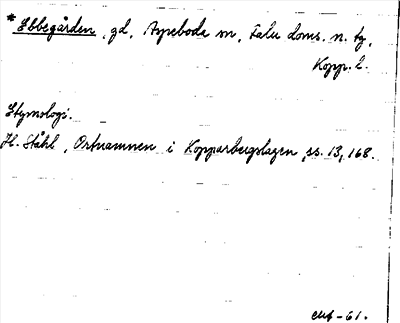 *Ebbegården, gd, Aspeboda sn, Falu doms. n. tg,
Kopp. l.
Etymologi.
H. Ståhl, Ortnamnen i Kopparbergslagen, ss. 13, 168.
-61.